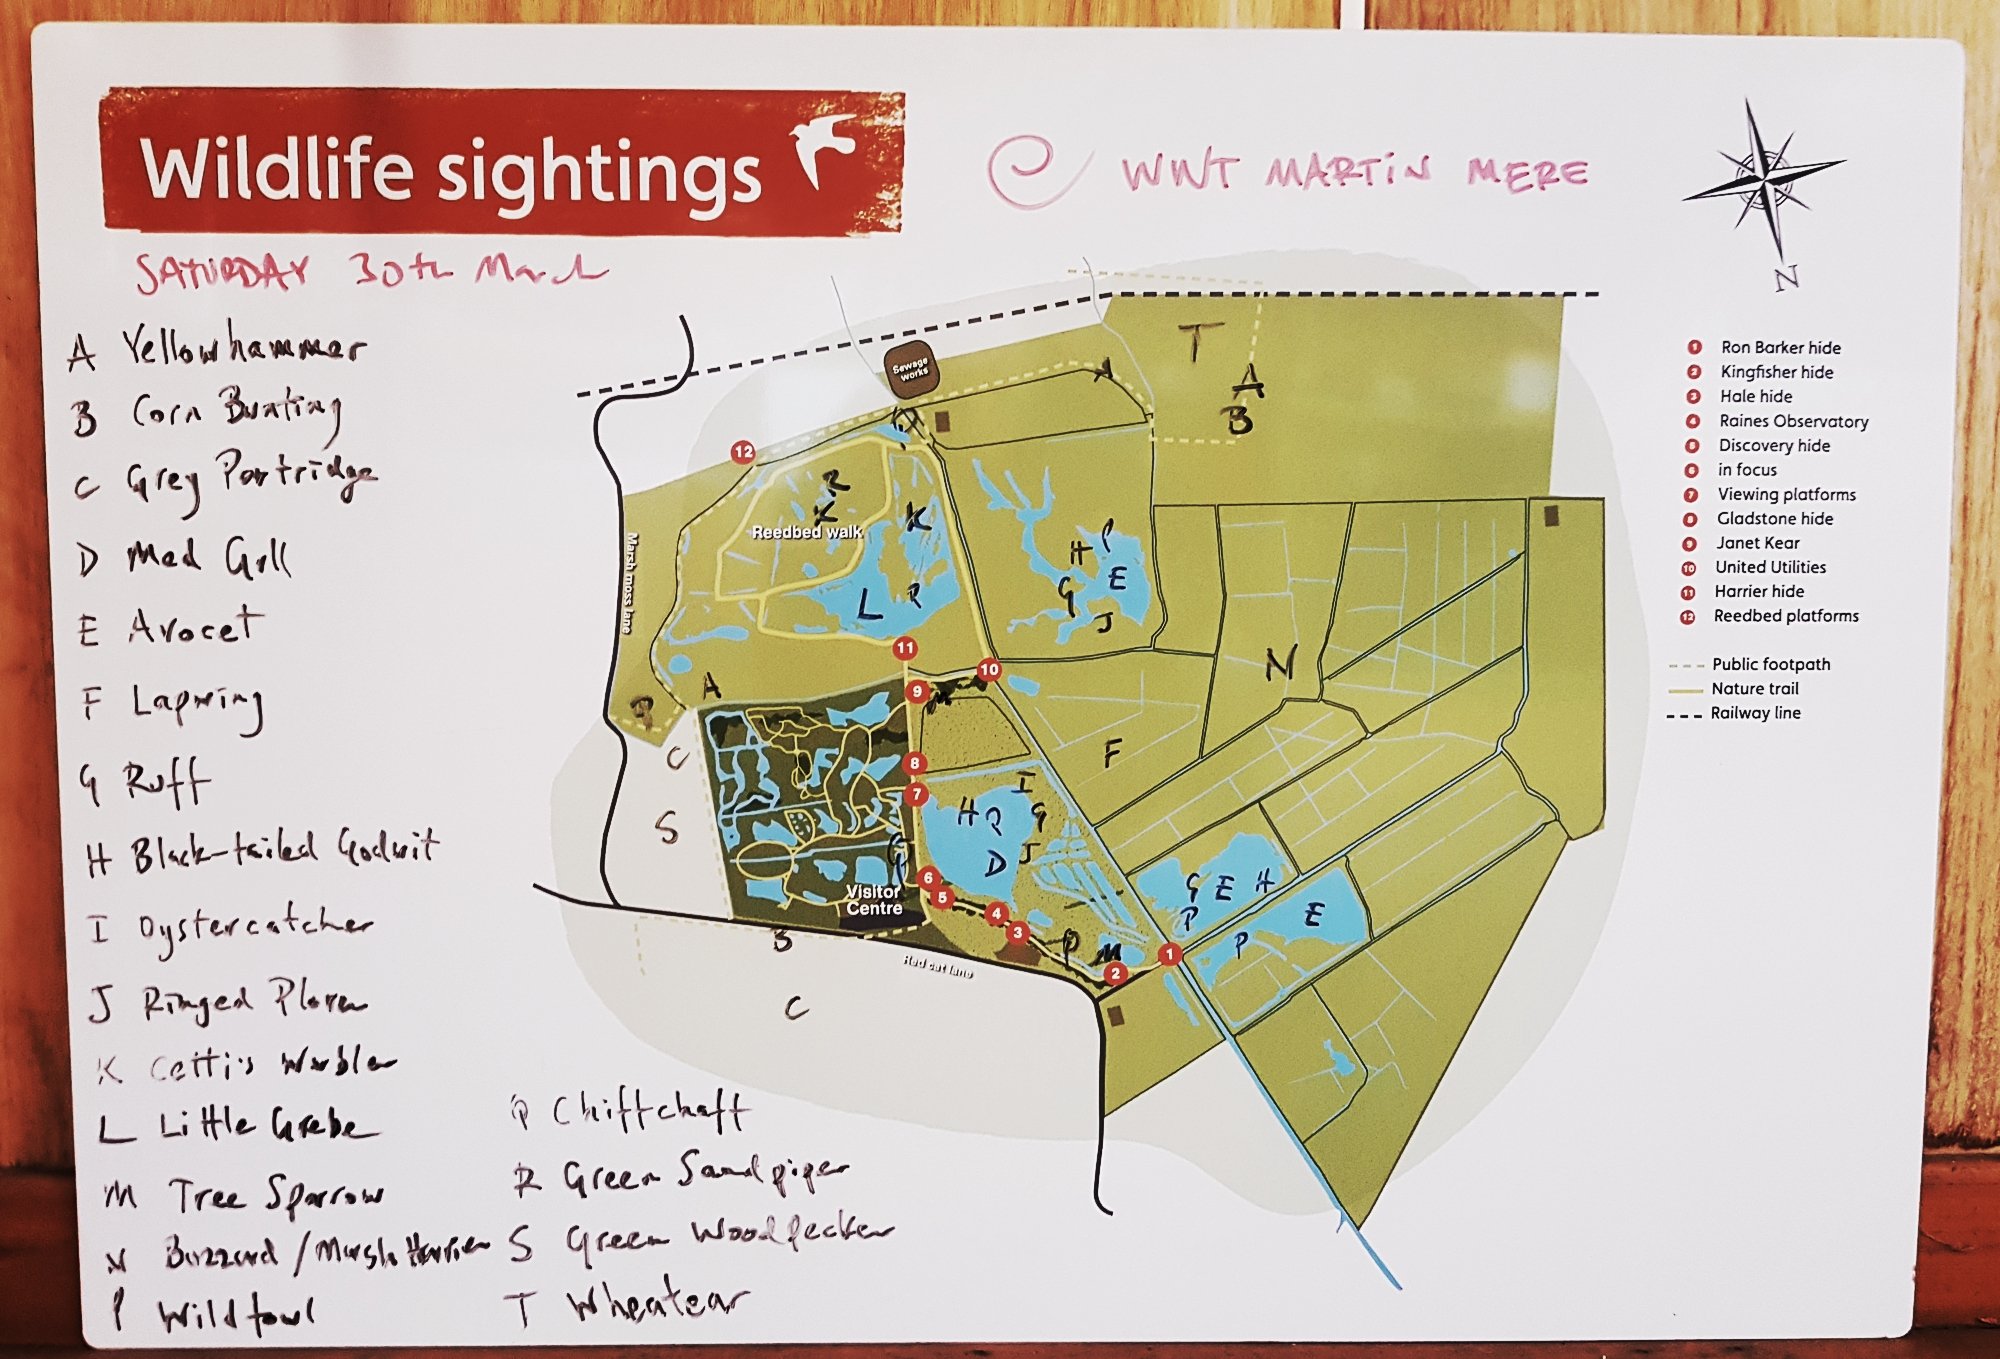 Wildlife sightings
WWT MARTIN MERE
SATURDAY 30th March
N
A Yellowhammer
B Corn Bunting
C Grey Partridge
D Med Gull
E Avocet
F Lapwing
G Ruff
H Black-tailed Godwit
I Oystercatcher
J Ringed Plover
K Cetti's Warbler
L Little Grebe
M Tree Sparrow
N Buzzard / Marsh Harrier
P Wildfowl
Q Chiffchaff
R Green Sandpiper
S Green Woodpecker
T Wheatear
1 Ron Barker hide
2 Kingfisher hide
3 Hale hide
4 Raines Observatory
5 Discovery hide
6 in focus
7 Viewing platforms
8 Gladstone hide
9 Janet Kear
10 United Utilities
11 Harrier hide
12 Reedbed platforms
Public footpath
Nature trail
Railway line
T
Sewage
works
A
A
B
12
R
K
K
Reedbed walk
P
H
E
G
J
L
Marsh moss lane
11
10
N
A
9
C
F
8
I
7
H
G
S
J
D
6
5
Visitor
Centre
4
3
G E H
P
E
P
M
1
2
B
Red cat lane
C